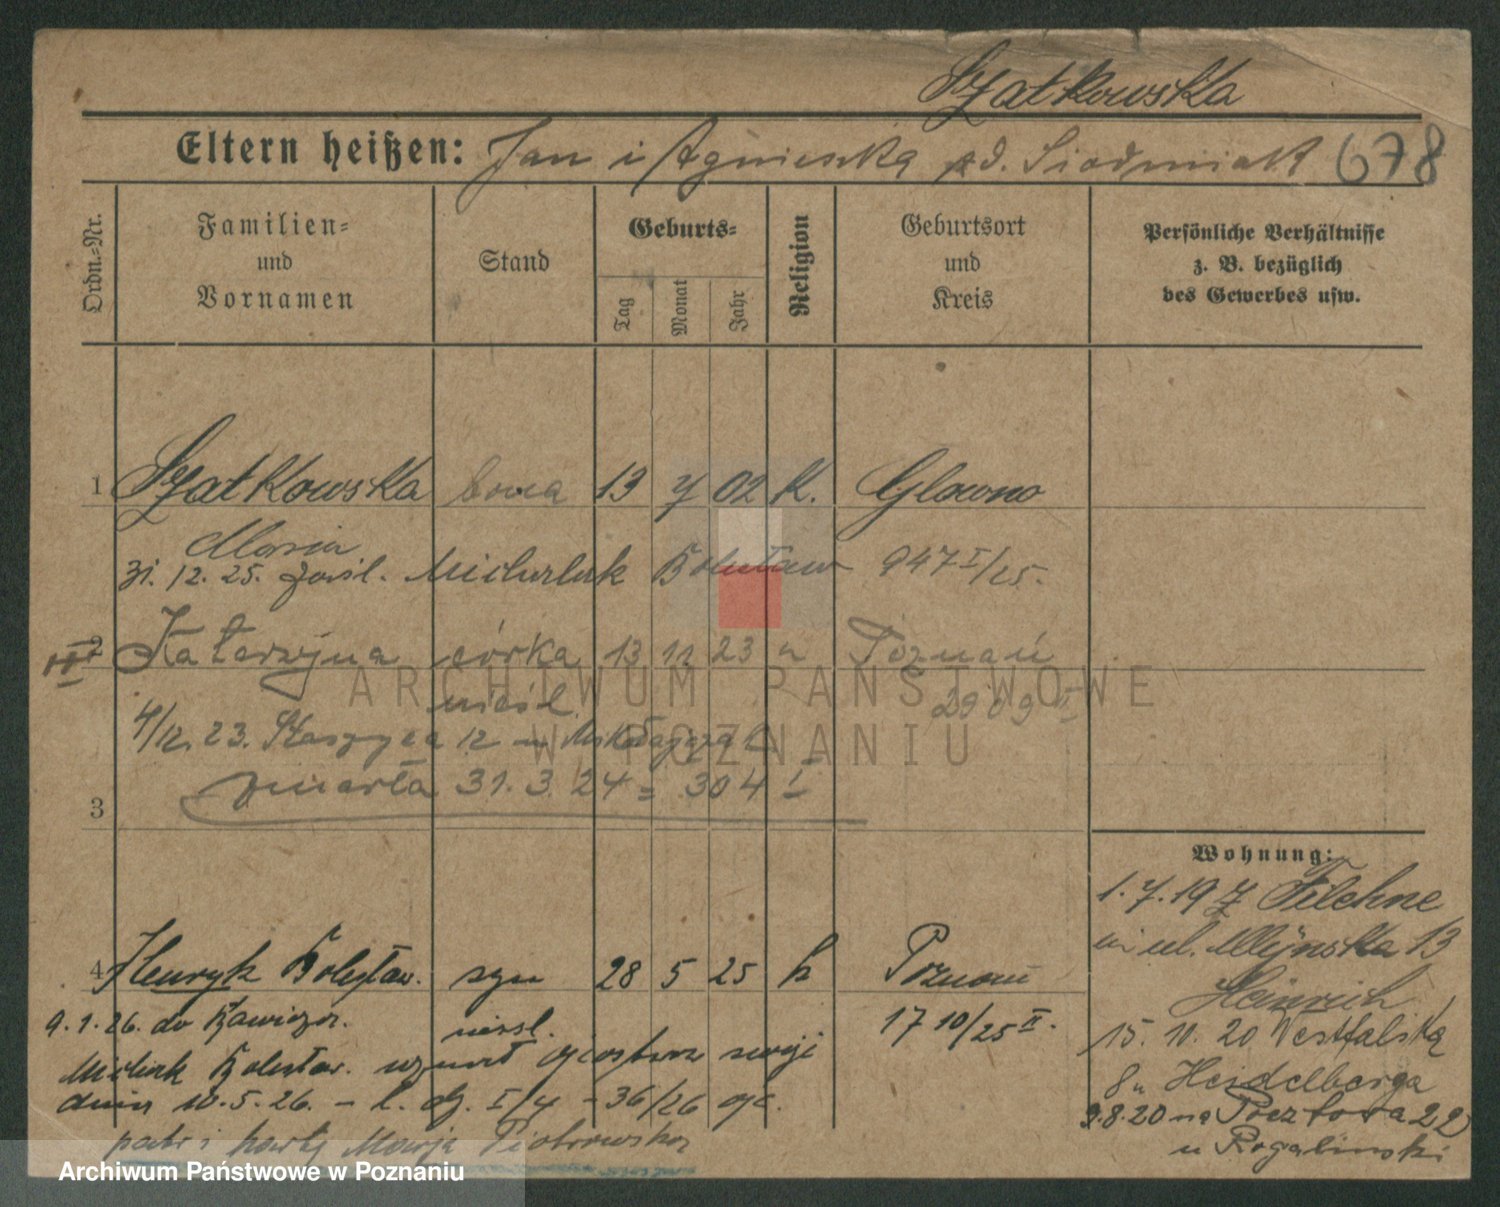 Szatkowska
Eltern heißen: Jan i Agnieszka zd. Siodmiak 678
Ordn.-Nr.
Familien-
und
Vornamen
Stand
Geburts-
Tag
Monat
Jahr
Religion
Geburtsort
und
Kreis
Persönliche Verhältnisse
z. B. bezüglich
des Gewerbes usw.
1 Szatkowska 13 7 02 K. Glowno
Maria
31. 12. 25. zaśl. Bolesław 947 I/25.
2 Katarzyna córka 13 11 23 Poznań
nieśl. 2909 II
4/12. 23. 12
zmarła 31. 3. 24 = 304 I
3
4 Henryk Bolesław. syn 28 5 25 k Poznań
9. 1. 26. do nieśl. 17 10/25 II.
Bolesław. uznał ojcostwo swoje
dnia 10. 5. 26. - I/4 - 36/26
patrz kartę Marja Piotrowska
Wohnung:
1. 7. 19 z Filehne
ul. Młyńska 13
Heinrich
15. 10. 20 Westfalską
8 u Heidelberga
9.8.20 na Pocztowa 22
u Rogalinski
ARCHIWUM PAŃSTWOWE
W POZNANIU
Archiwum Państwowe w Poznaniu